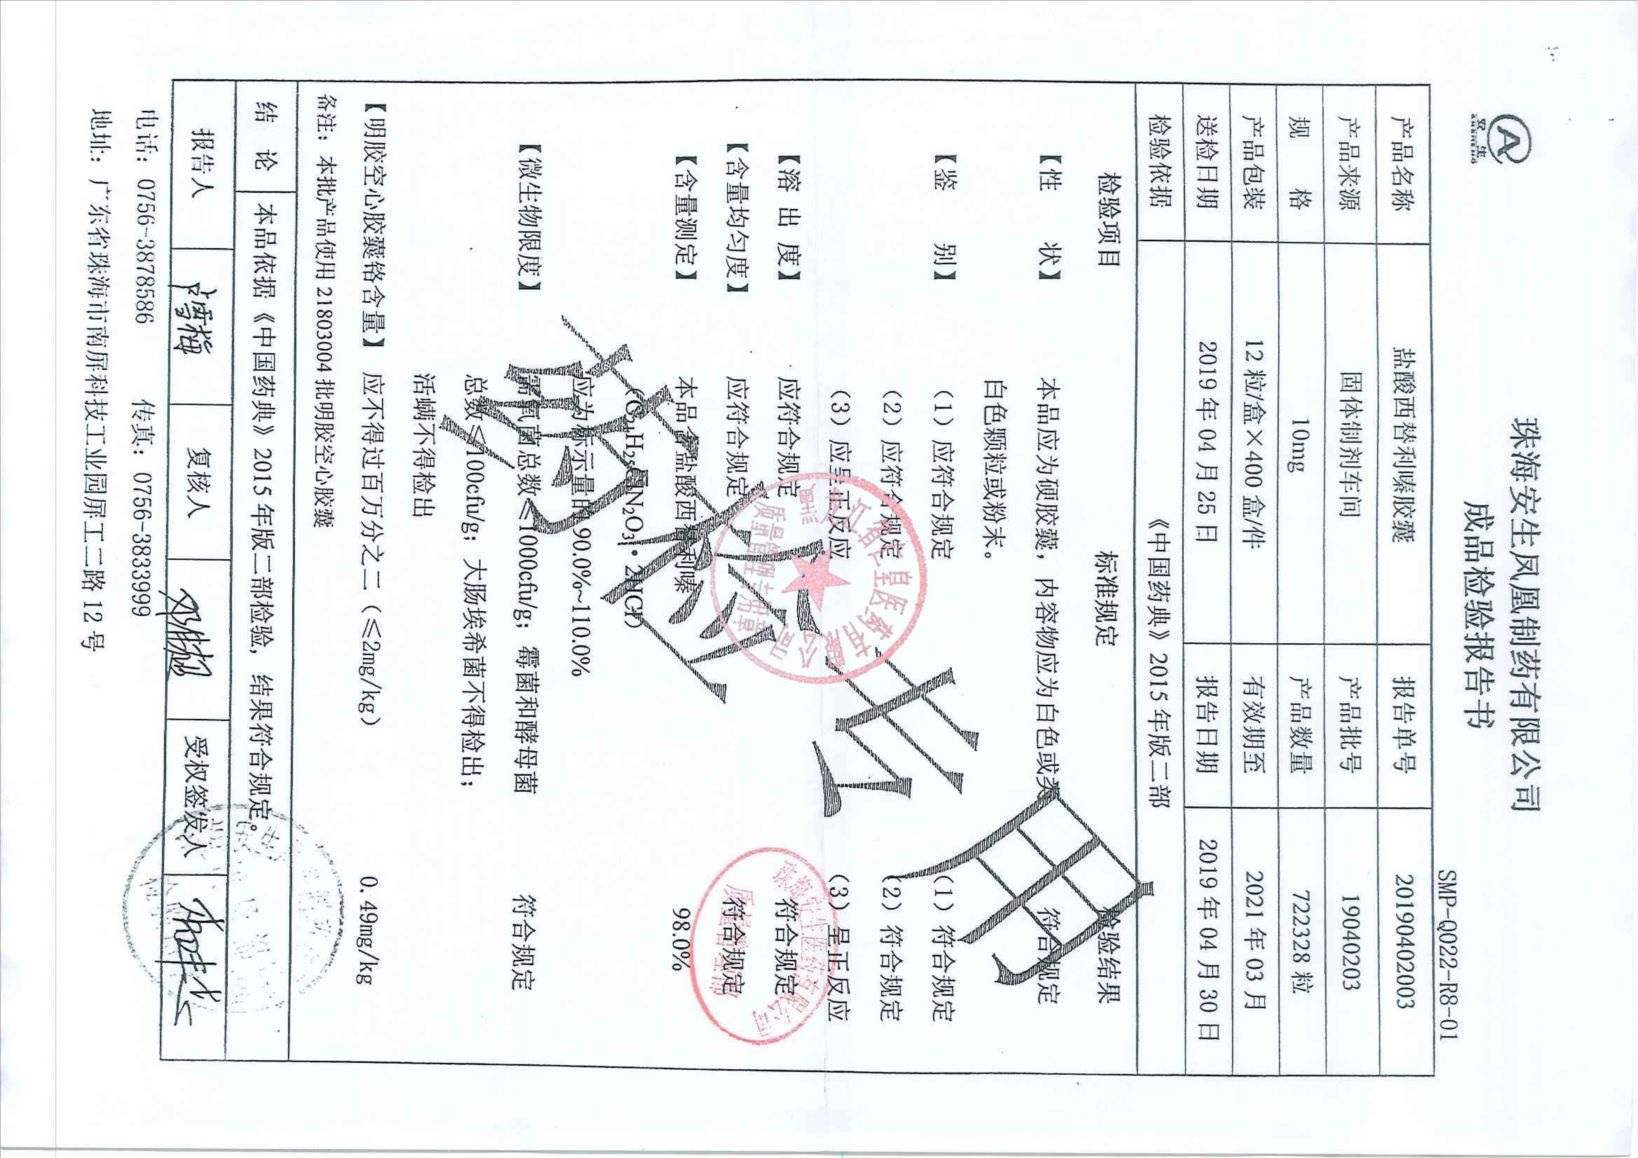 安生
珠海安生凤凰制药有限公司
成品检验报告书
SMP-Q022-R8-01
产品名称 盐酸西替利嗪胶囊 报告单号 20190402003
产品来源 固体制剂车间 产品批号 19040203
规 格 10mg 产品数量 722328 粒
产品包装 12 粒/盒×400 盒/件 有效期至 2021 年 03 月
送检日期 2019 年 04 月 25 日 报告日期 2019 年 04 月 30 日
检验依据 《中国药典》2015 年版二部
检验项目 标准规定 检验结果
【性 状】 本品应为硬胶囊，内容物应为白色或类 符合规定
白色颗粒或粉末。
【鉴 别】 （1）应符合规定 （1）符合规定
（2）应符合规定 （2）符合规定
（3）应呈正反应 （3）呈正反应
【溶 出 度】 应符合规定 符合规定
【含量均匀度】 应符合规定 符合规定
【含量测定】 本品含盐酸西替利嗪 98.0%
（C₂₁H₂₅ClN₂O₃·2HCl）
应为标示量的 90.0%~110.0%
【微生物限度】 需氧菌总数≤1000cfu/g；霉菌和酵母菌 符合规定
总数≤100cfu/g；大肠埃希菌不得检出；
活螨不得检出
【明胶空心胶囊铬含量】 应不得过百万分之二（≤2mg/kg） 0.49mg/kg
备注：本批产品使用 21803004 批明胶空心胶囊
结 论 本品依据《中国药典》2015 年版二部检验，结果符合规定。
报告人 复核人 受权签发人
电话：0756-3878586 传真：0756-3833999
地址：广东省珠海市南屏科技工业园屏工二路 12 号